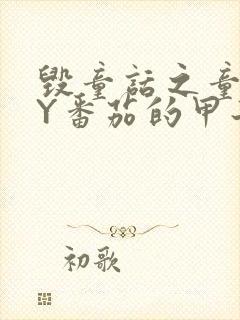 毁童话之童
Y番茄的甲
初歌